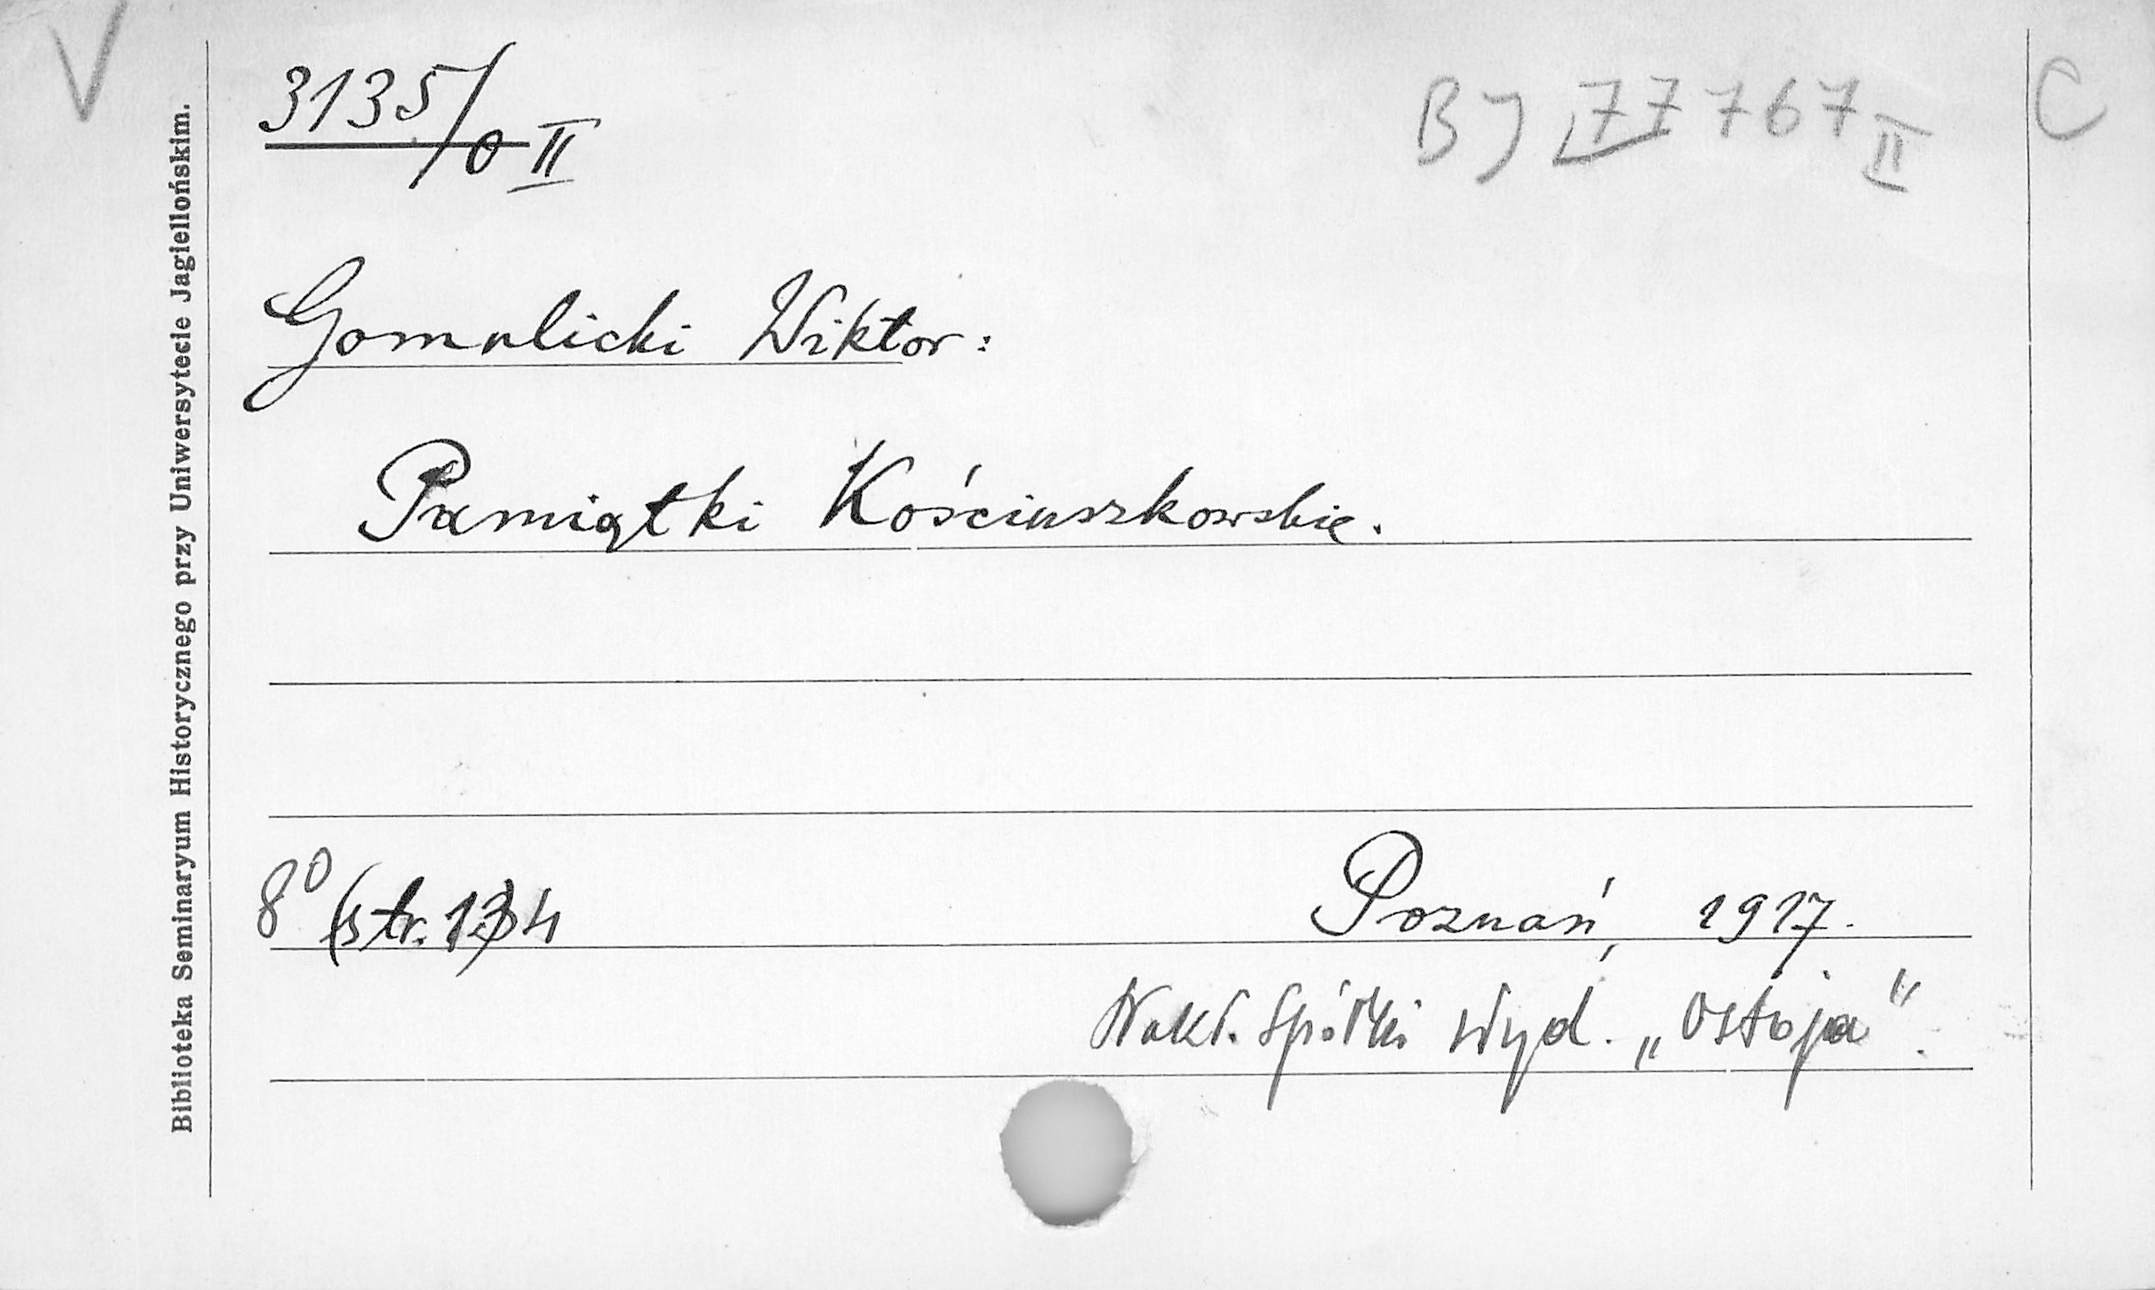 V
3135/0 II
BJ 77767 II
C
Gomulicki Wiktor:
Pamiątki Kościuszkowskie.
8⁰ (str. 134
Poznań, 1917.
Nakł. Spółki Wyd. „Ostoja".
Biblioteka Seminaryum Historycznego przy Uniwersytecie Jagiellońskim.